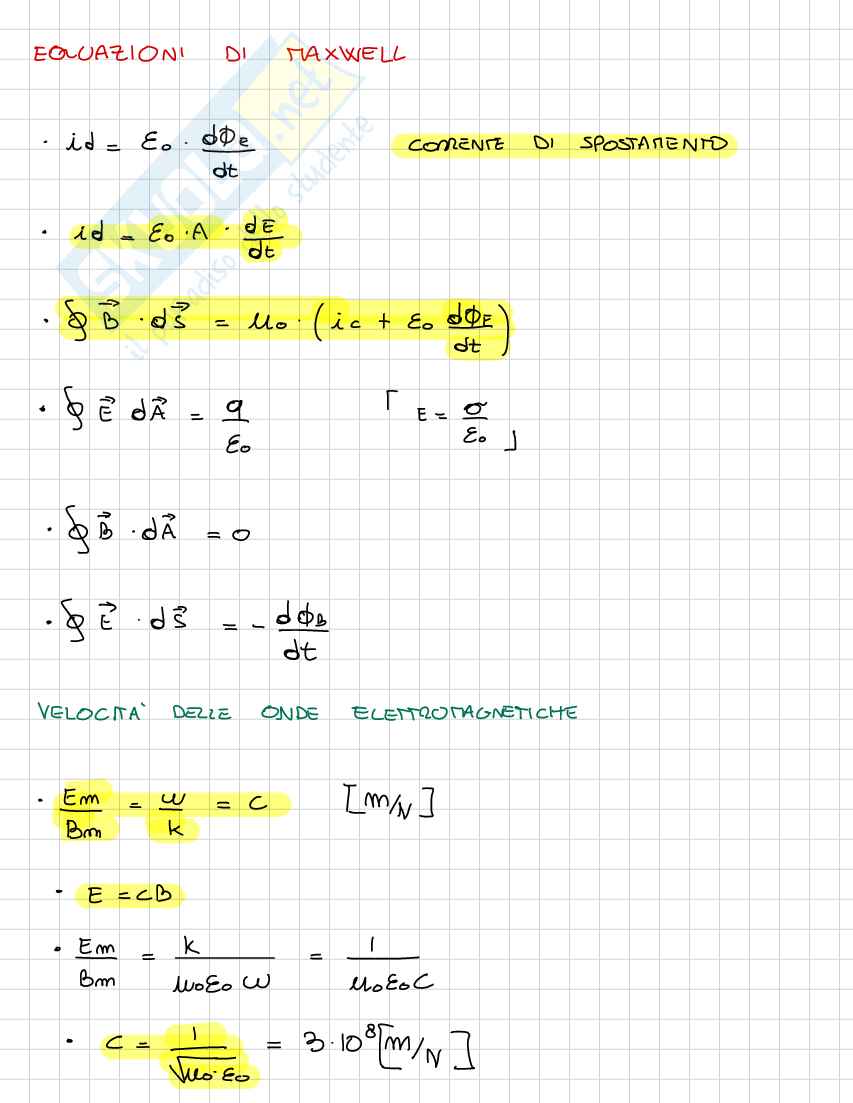 EQUAZIONI DI MAXWELL
· id = ε₀ · dΦE/dt CORRENTE DI SPOSTAMENTO
· id = ε₀ · A · dE/dt
· ∮ B⃗ · dS⃗ = μ₀ · (ic + ε₀ dΦE/dt)
· ∮ E⃗ dA⃗ = q/ε₀ ⌈ E = σ/ε₀ ⌋
· ∮ B⃗ · dA⃗ = 0
· ∮ E⃗ · dS⃗ = - dΦB/dt
VELOCITA' DELLE ONDE ELETTROMAGNETICHE
· Em/Bm = ω/k = C [m/s]
· E = CB
· Em/Bm = k/μ₀ε₀ω = 1/μ₀ε₀C
· C = 1/√μ₀·ε₀ = 3·10⁸ [m/s]